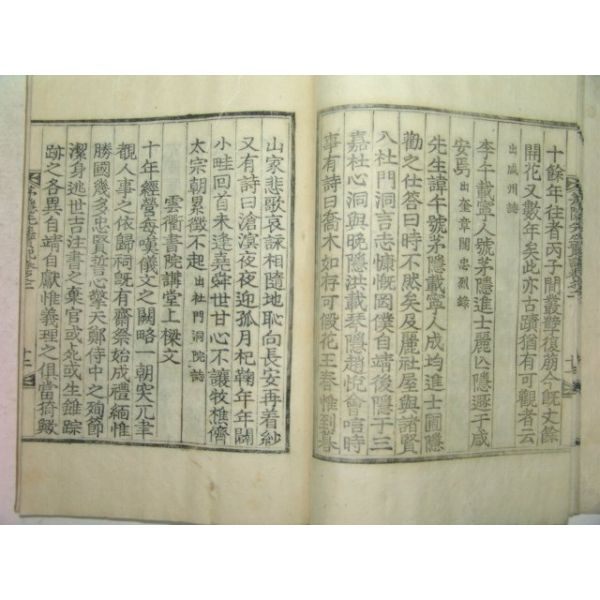 十餘年往者丙子間叢雙復翁今旣丈餘
開花又數年矣此亦古蹟猶有可觀者云
出咸州誌
李午載寗人號茅隱進士麗亡隱遯于咸
安 出奎章閣忠烈錄
先生諱午號茅隱載寗人成均進士圃隱
勸之仕答曰時不然矣及麗社屋與諸賢
入杜門洞言志慷慨因僕自靖後隱于三
嘉杜心洞與晩隱洪載琴隱趙悅會唔時
事有詩曰喬木如存可假花王春惟到暮
山家悲歌哀詠相隨地恥向長安再着紗
又有詩曰滄溟夜夜迎孤月杞鞠年年闢
小畦回首未逢堯舜世甘心不讓牧樵儕
太宗朝累徵不起 出杜門洞院誌
雲衢書院講堂上樑文
十年經營每嘆儀文之闕略一朝突兀聿
觀人事之依歸祠旣有齋祭始成禮緬惟
勝國幾多忠賢誓心擎天鄭侍中之殉節
潔身逃世吉注書之棄官或死或生雖踪
跡之各異自靖自獻惟義理之俱當猗歟
十二